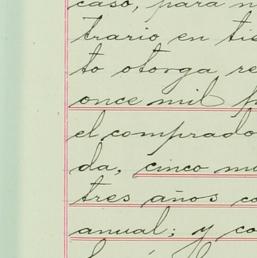 caso, para
trario en
to otorga
once mil
el comprado
da, cinco
tres años
anual; y